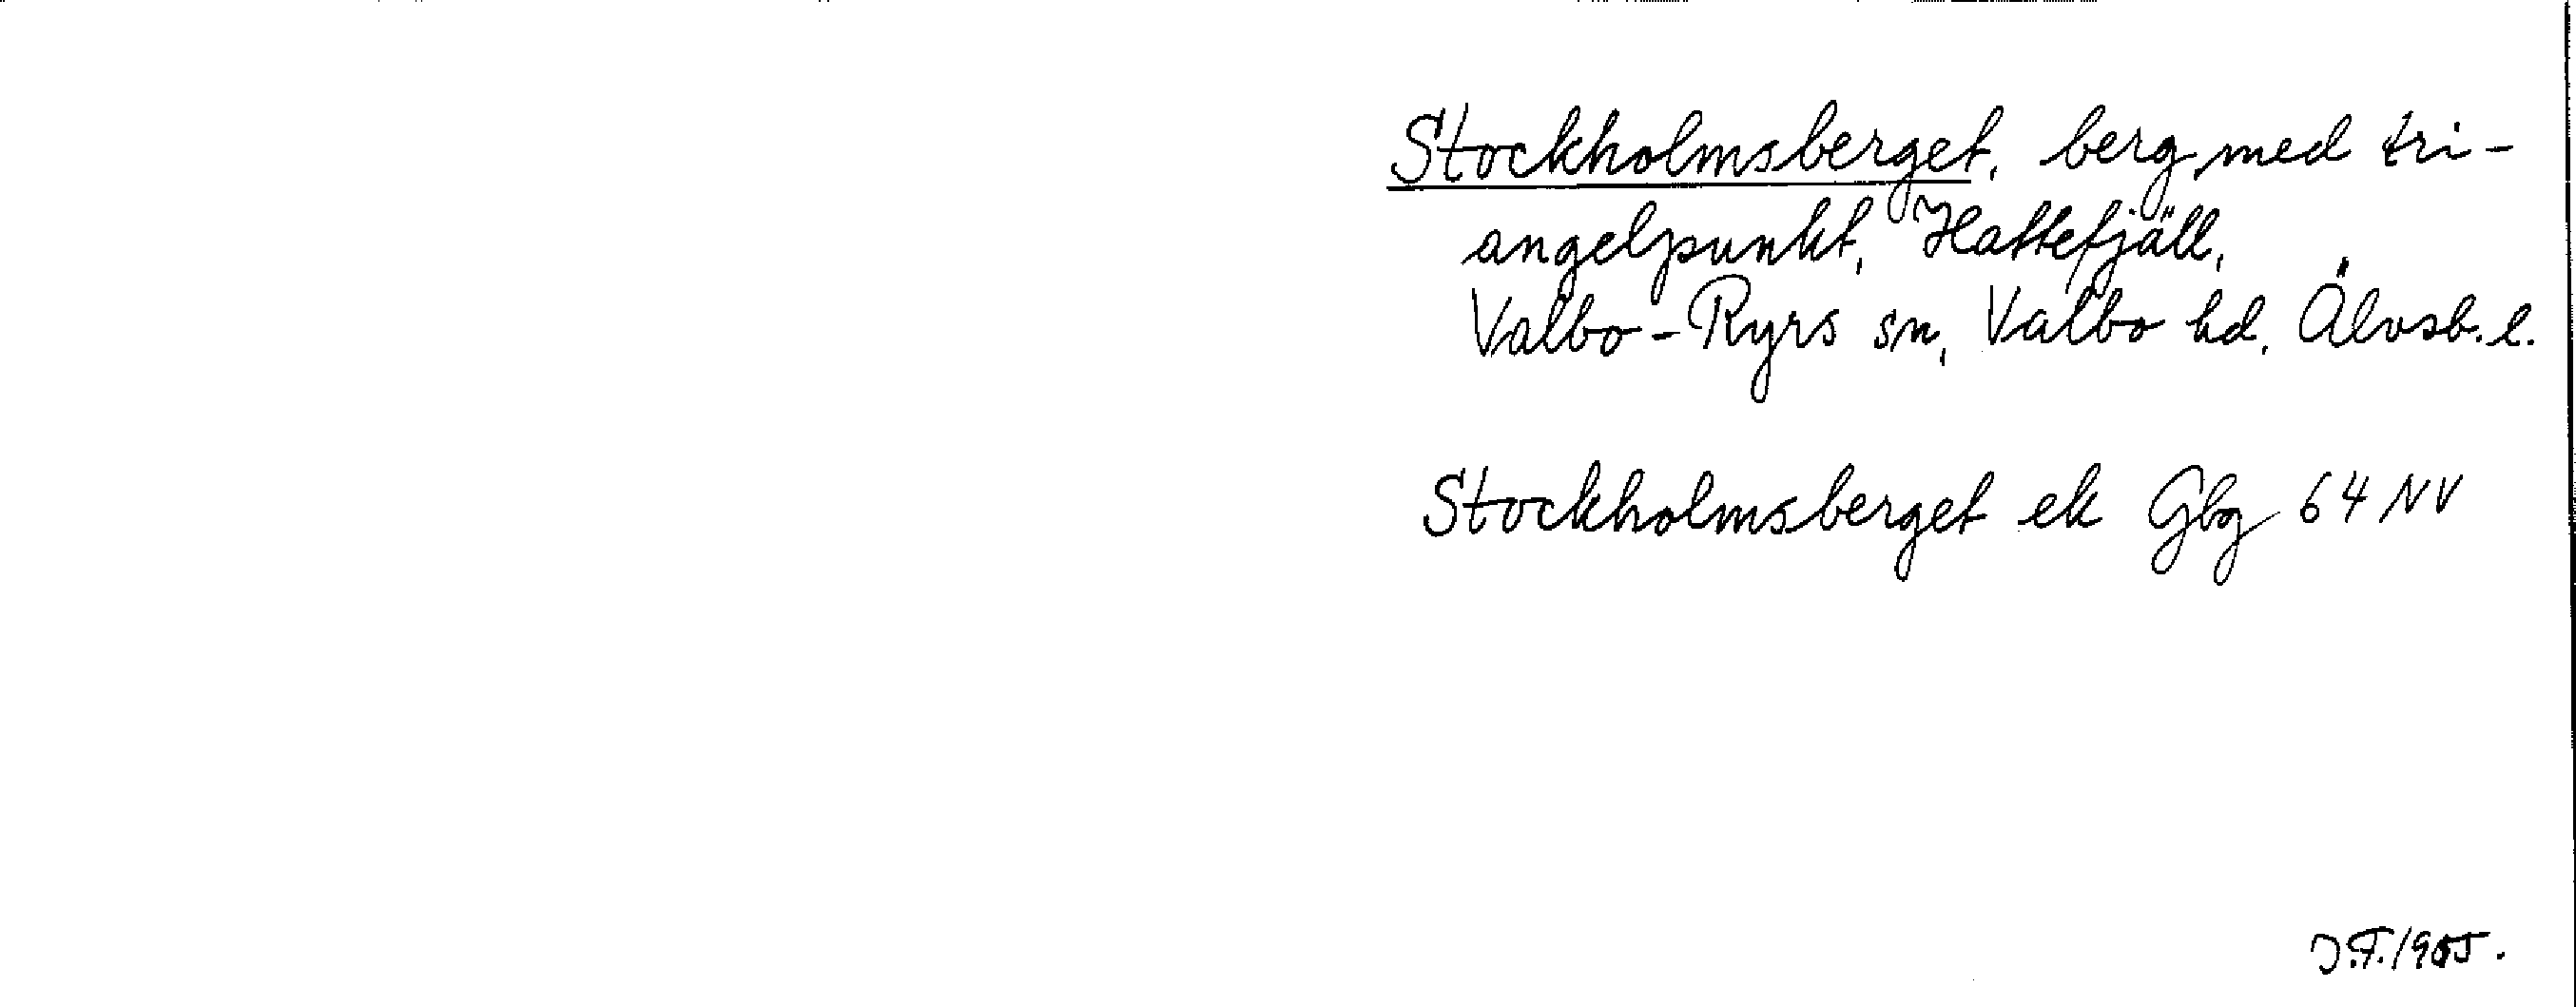 Stockholmsberget, berg med tri-
angelpunkt, Hattefjäll,
Valbo-Ryrs sn, Valbo hd, Älvsb. l.
Stockholmsberget ek Gbg 64 NV